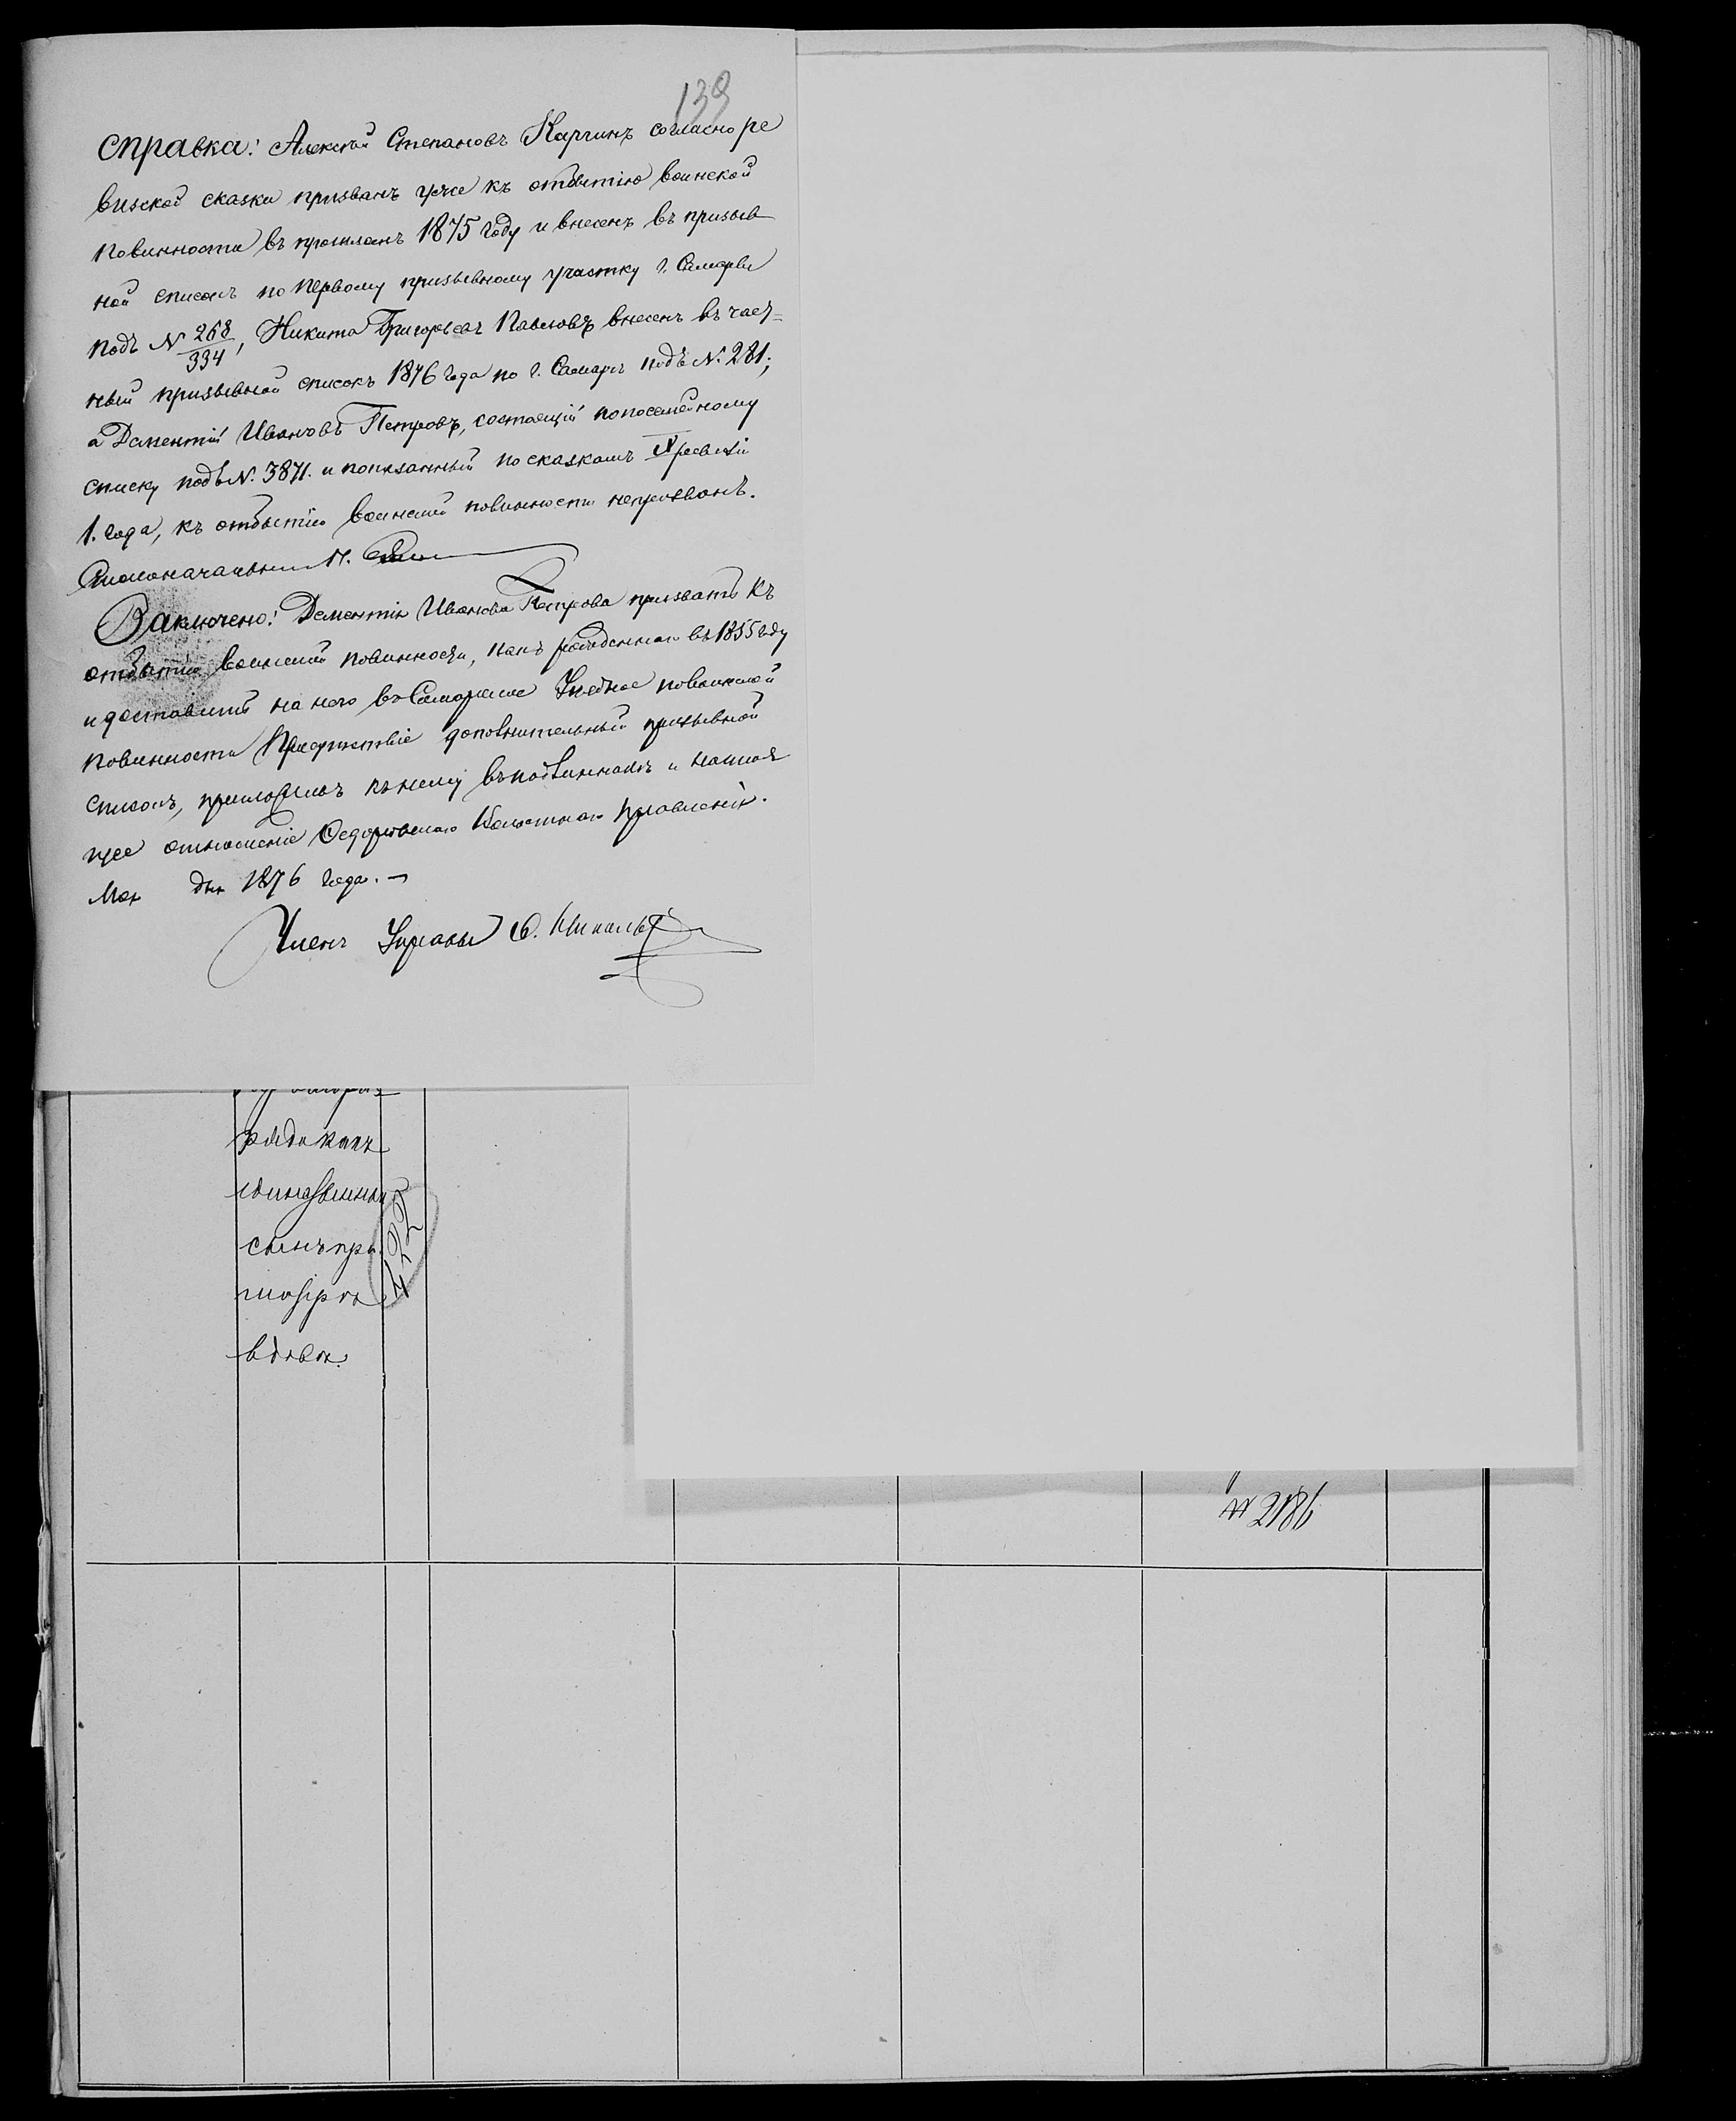 139
Справка: Алексей Степановъ Каргинъ согласно ре
визской сказки призванъ уже къ отбытію воинской
повинности въ прошломъ 1875 году и внесенъ въ призыв
ной списокъ по первому призывному участку г. Самары
подъ № 268/334, Никита Григорьевъ Павловъ внесенъ въ част=
ный призывной списокъ 1876 года по г. Самаръ подъ №. 281;
а Дементій Ивановъ Петровъ, состоящій по посемейному
списку подъ №. 3871. и показанный по сказкамъ X ревизіи
1. года, къ отбытію воинской повинности непризванъ.
Столоначальникъ П.
Заключено: Дементія Иванова Петрова призвать къ
отбытію воинской повинности, какъ рожденнаго въ 1855 году
и доставить на него въ Самарское Уездное по воинской
повинности Присутствіе дополнительный призывной
списокъ, приложивъ къ нему въ подлинникъ и настоя
щее отношеніе Федоровскаго Волостнаго Правленія.
Мая дня 1876 года. —
Членъ Управы
рядо какъ
единственный
сынъ при
матери
вдовѣ.
422
№ 2186